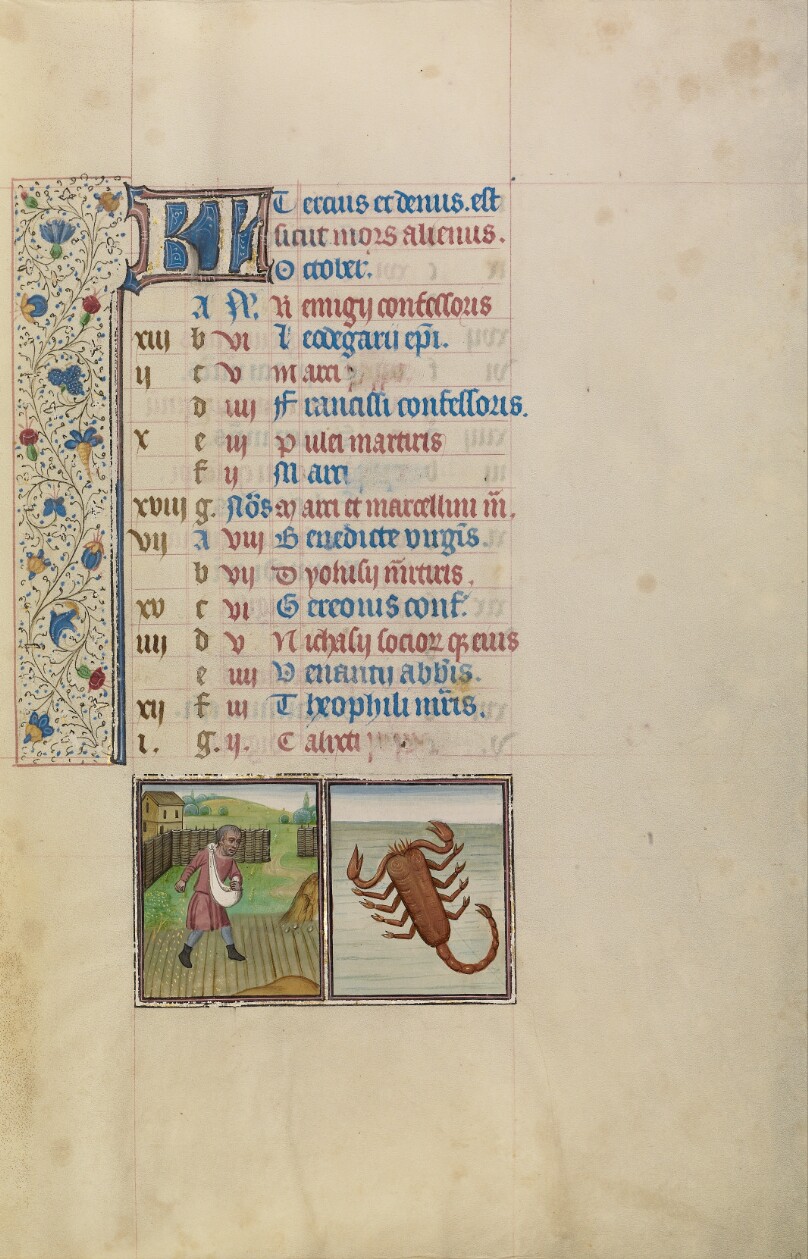 KL Tercius et denus. est
sicut mors alienus.
October.
A N. Remigij confessoris
xiij b vi Leodegarii epi.
ij c v Marci
d iiij Francisci confessoris.
x e iij Pulci martiris
f ij Marci
xviij g. Nos Marci et marcellini m.
vij A viij Benedicte virgis.
b vij Dyonisij mrtiris.
xv c vi Gereonis conf.
iiij d v Nichasij socior q eius
e iiij Venantij abbis.
xij f iij Theophili mris.
i. g. ij. Calixti